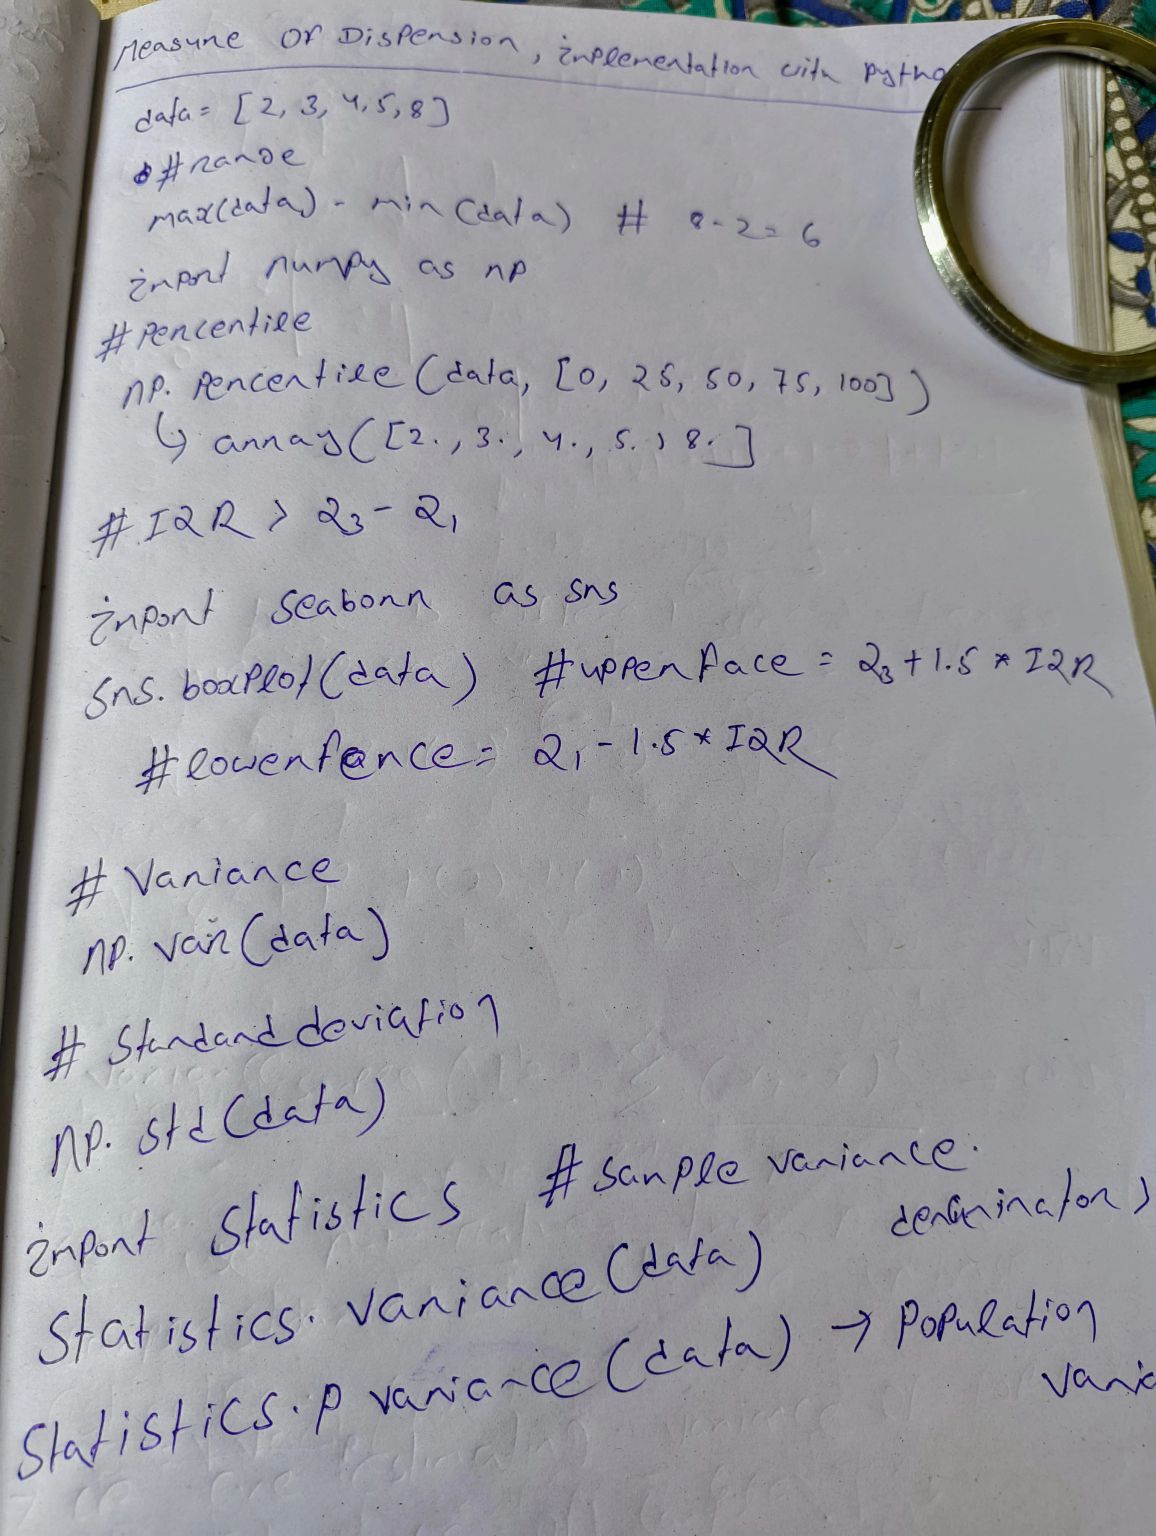 Measure Of Dispension, inplementation with pytho
data = [2, 3, 4, 5, 8]
# range
max(data) - min(data) # 8-2=6
import numpy as np
# Percentile
np. Percentile (data, [0, 25, 50, 75, 100])
↳ array([2., 3., 4., 5., 8.]
# IQR > Q3 - Q1
import Seaborn as sns
sns. boxplot(data) # upper face = Q3 + 1.5 * IQR
# lower fence = Q1 - 1.5 * IQR
# Variance
np. var(data)
# Standard deviation
np. std(data)
import Statistics # Sample variance.
Statistics. variance(data)
Statistics. p variance(data) → Population